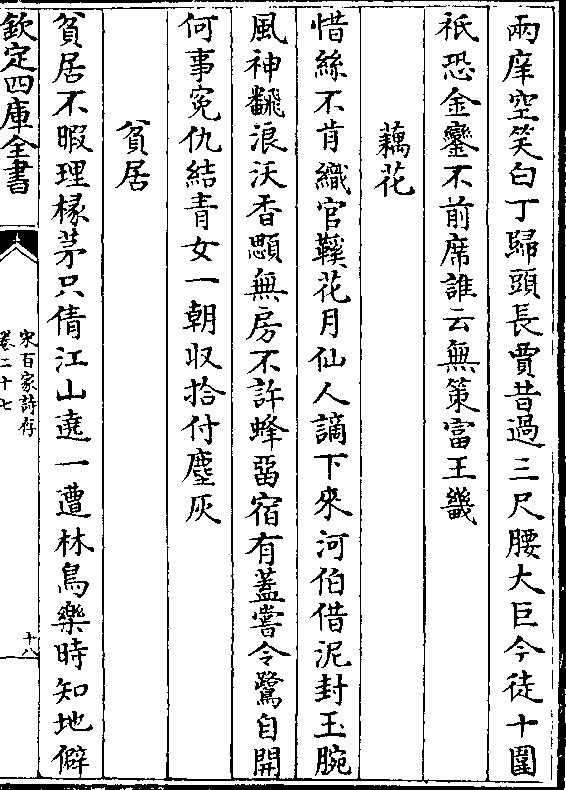 兩痒空笑白丁歸頭長賈昔過三尺腰大巨今徒十圍
祇恐金鑾不前席誰云無策富王畿
藕花
惜絲不肯織官鞵花月仙人謫下來河伯借泥封玉腕
風神飜浪沃香顋無房不許蜂留宿有葢嘗令鷺自開
何事寃仇結青女一朝収拾付塵灰
貧居
貧居不暇理椽茅只倩江山遶一遭林鳥樂時知地僻
欽定四庫全書
宋百家詩存
卷二十七
十八